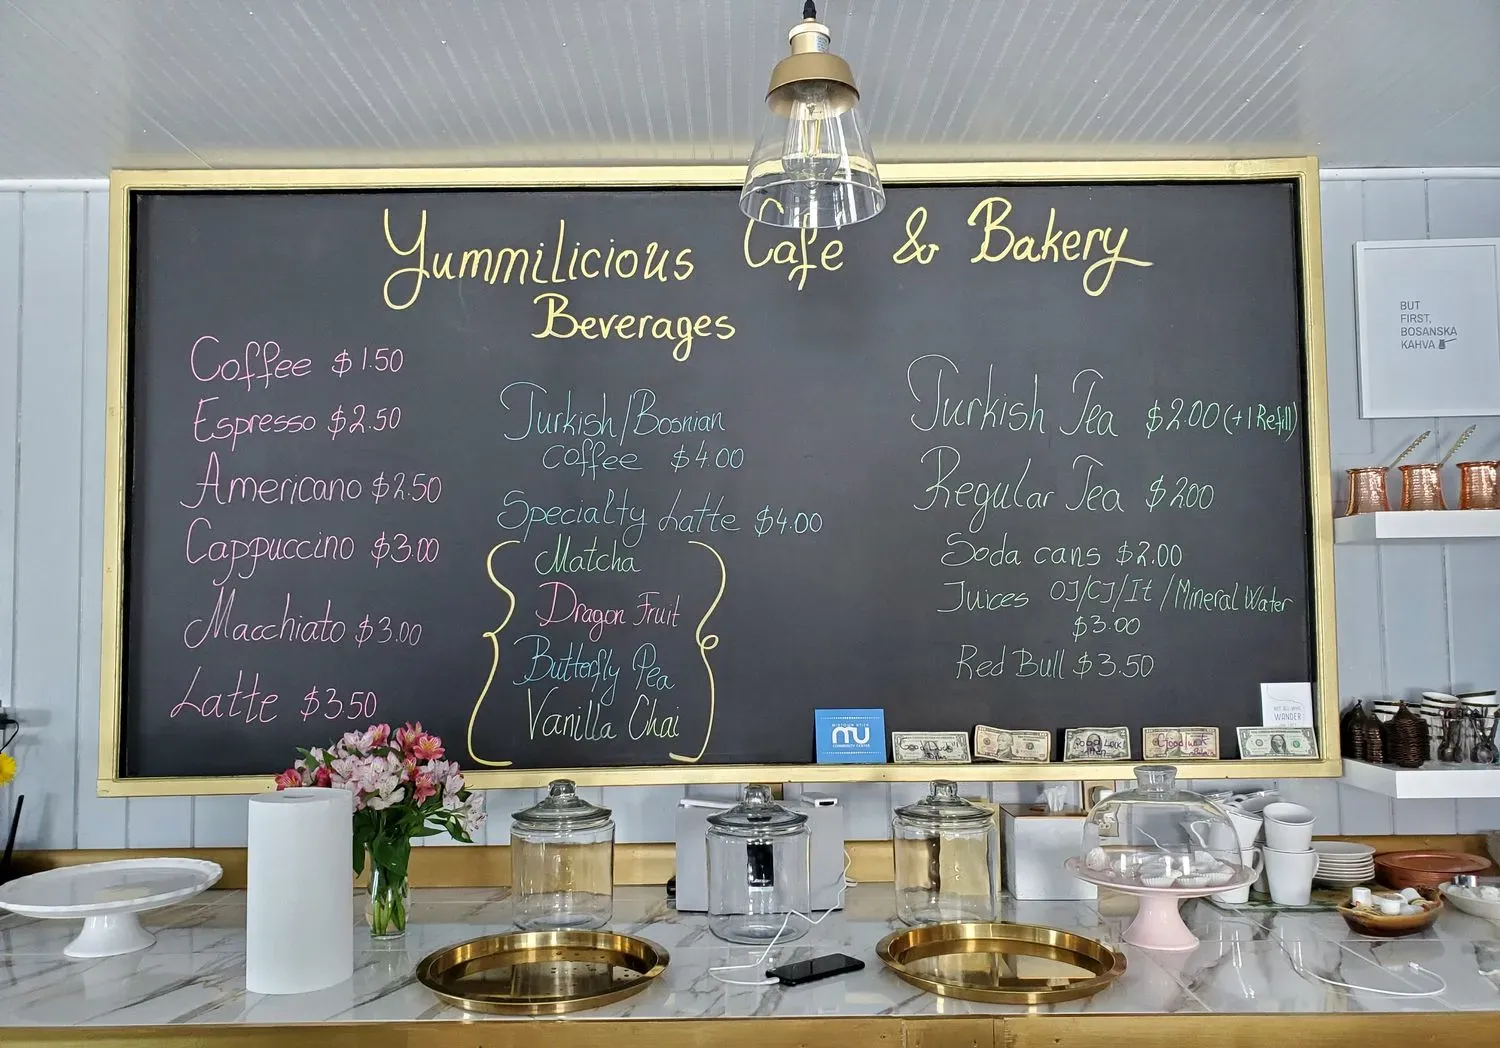 Yummilicious Cafe & Bakery
Beverages
Coffee $1.50
Espresso $2.50
Americano $2.50
Cappuccino $3.00
Macchiato $3.00
Latte $3.50
Turkish/Bosnian
coffee $4.00
Specialty Latte $4.00
Matcha
Dragon Fruit
Butterfly Pea
Vanilla Chai
Turkish Tea $2.00 (+1 Refill)
Regular Tea $2.00
Soda cans $2.00
Juices OJ/CJ/It/Mineral Water
$3.00
Red Bull $3.50
BUT
FIRST,
BOSANSKA
KAHVA
MU
COMMUNITY CENTER
NOT ALL WHO
WANDER
ARE LOST
Good Luck